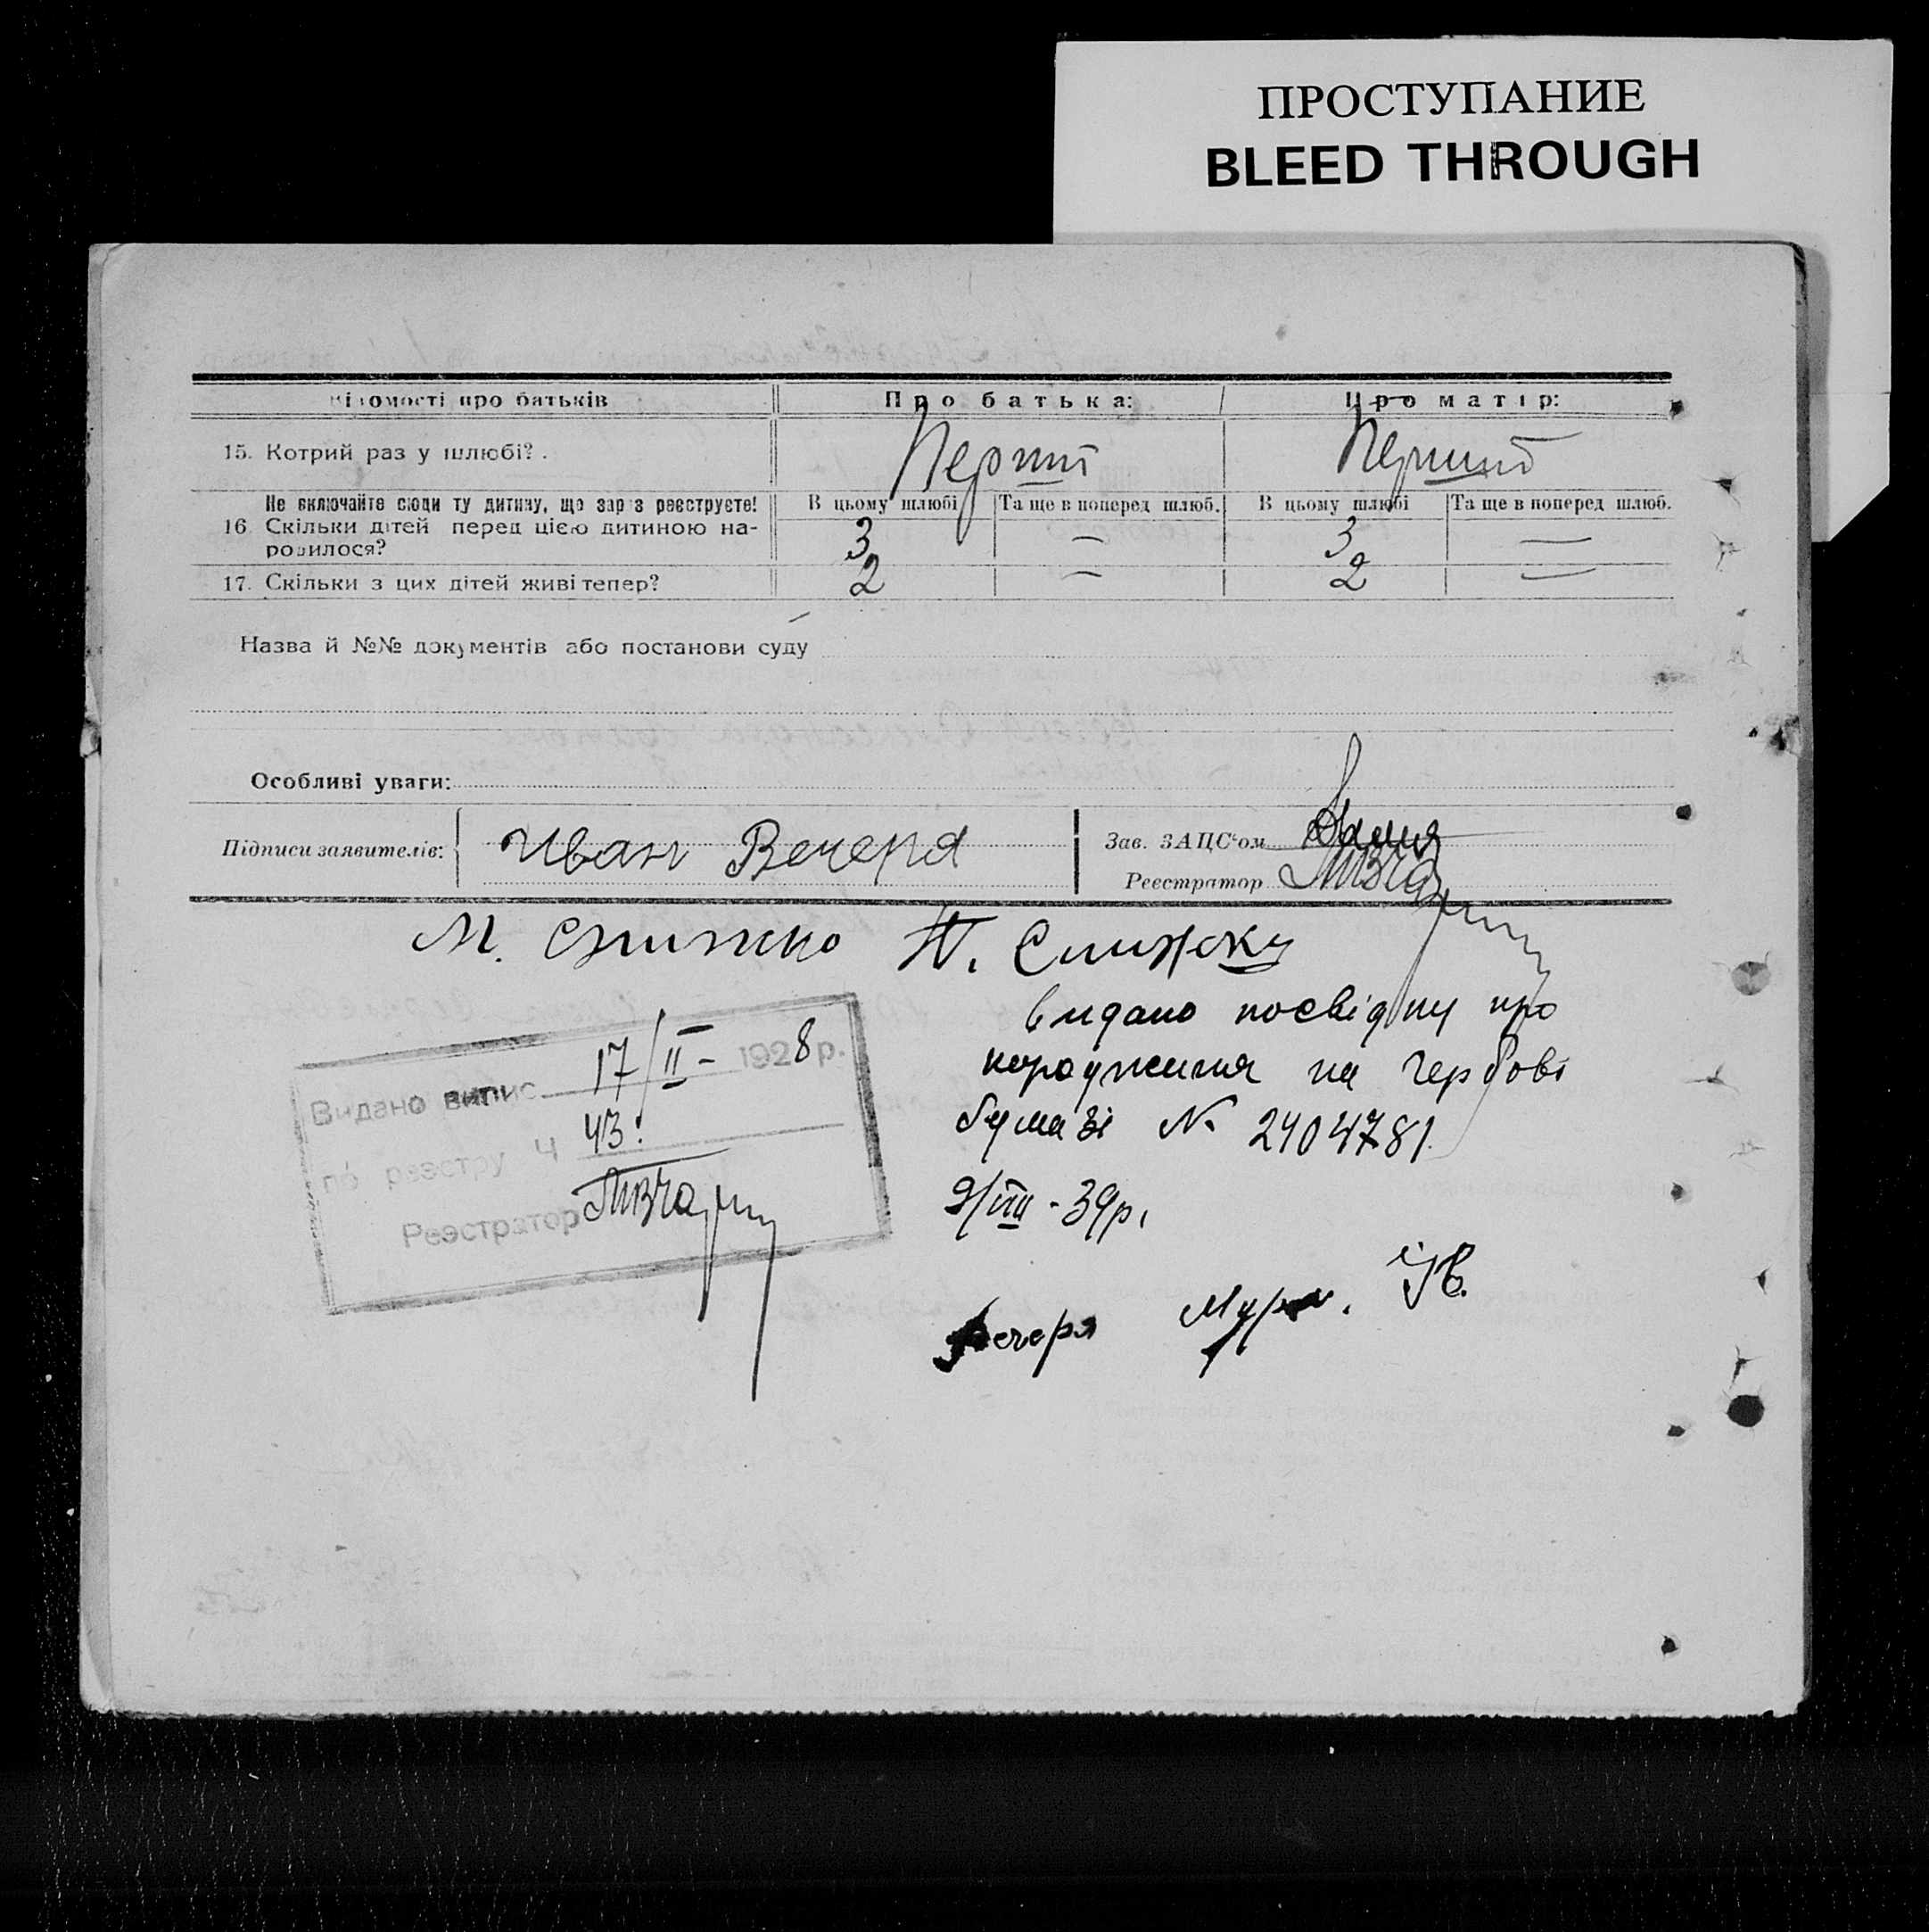 ПРОСТУПАНИЕ
BLEED THROUGH
Відомості про батьків
Про батька:
Про матір:
15. Котрий раз у шлюбі? .
Перший
Перший
Не включайте сюди ту дитину, що зараз реєструєте!
В цьому шлюбі
Та ще в поперед шлюб.
В цьому шлюбі
Та ще в поперед шлюб.
16 Скільки дітей перед цією дитиною на-
родилося?
3 — 3 —
17. Скільки з цих дітей живі тепер?
2 — 2 —
Назва й №№ документів або постанови суду
Особливі уваги:
Підписи заявителів:
Иван Вечеря
Зав. ЗАЦС'ом
Реєстратор
М. Слижко П. Слижску
Видано посвідку про
народження на гербові
бумазі № 2404781.
9/VIII - 39р.
Вечеря
Ів.
Видано випис 17/II - 1928 р.
по реєстру Ч 43.
Реєстратор